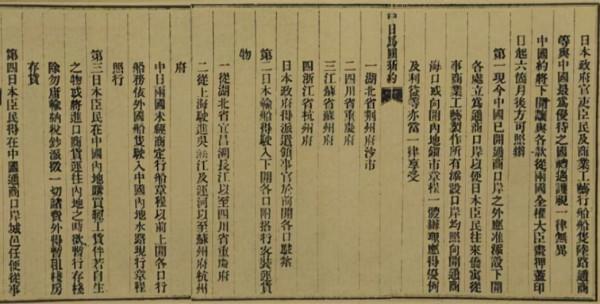 日本政府官吏臣民及商業工藝行船船隻陸路通商
等與中國最爲優待之國禮遇護視一律無異
中國約將下開讓與各款從兩國全權大臣畫押蓋印
日起六個月後方可照辦
第一現今中國已開通商口岸之外應准添設下開
各處立爲通商口岸以便日本臣民往來僑寓從
事商業工藝製作所有添設口岸均照向開通商
海口或向開內地鎮市章程一體辦理應得優例
及利益等亦當一律享受
中日馬關新約
一湖北省荊州府沙市
二四川省重慶府
三江蘇省蘇州府
四浙江省杭州府
日本政府得派遣領事官於前開各口駐紮
第二日本輪船得駛入下開各口附搭行客裝運貨
物
一從湖北省宜昌溯長江以至四川省重慶府
二從上海駛進吳淞江及運河以至蘇州府杭州
府
中日兩國未經商定行船章程以前上開各口行
船務依外國船隻駛入中國內地水路現行章程
照行
第三日本臣民在中國內地購買經工貨件若自生
之物或將進口商貨運往內地之時欲暫行存棧
除勿庸輸納稅鈔派徵一切諸費外得暫租棧房
存貨
第四日本臣民得在中國通商口岸城邑任便從事